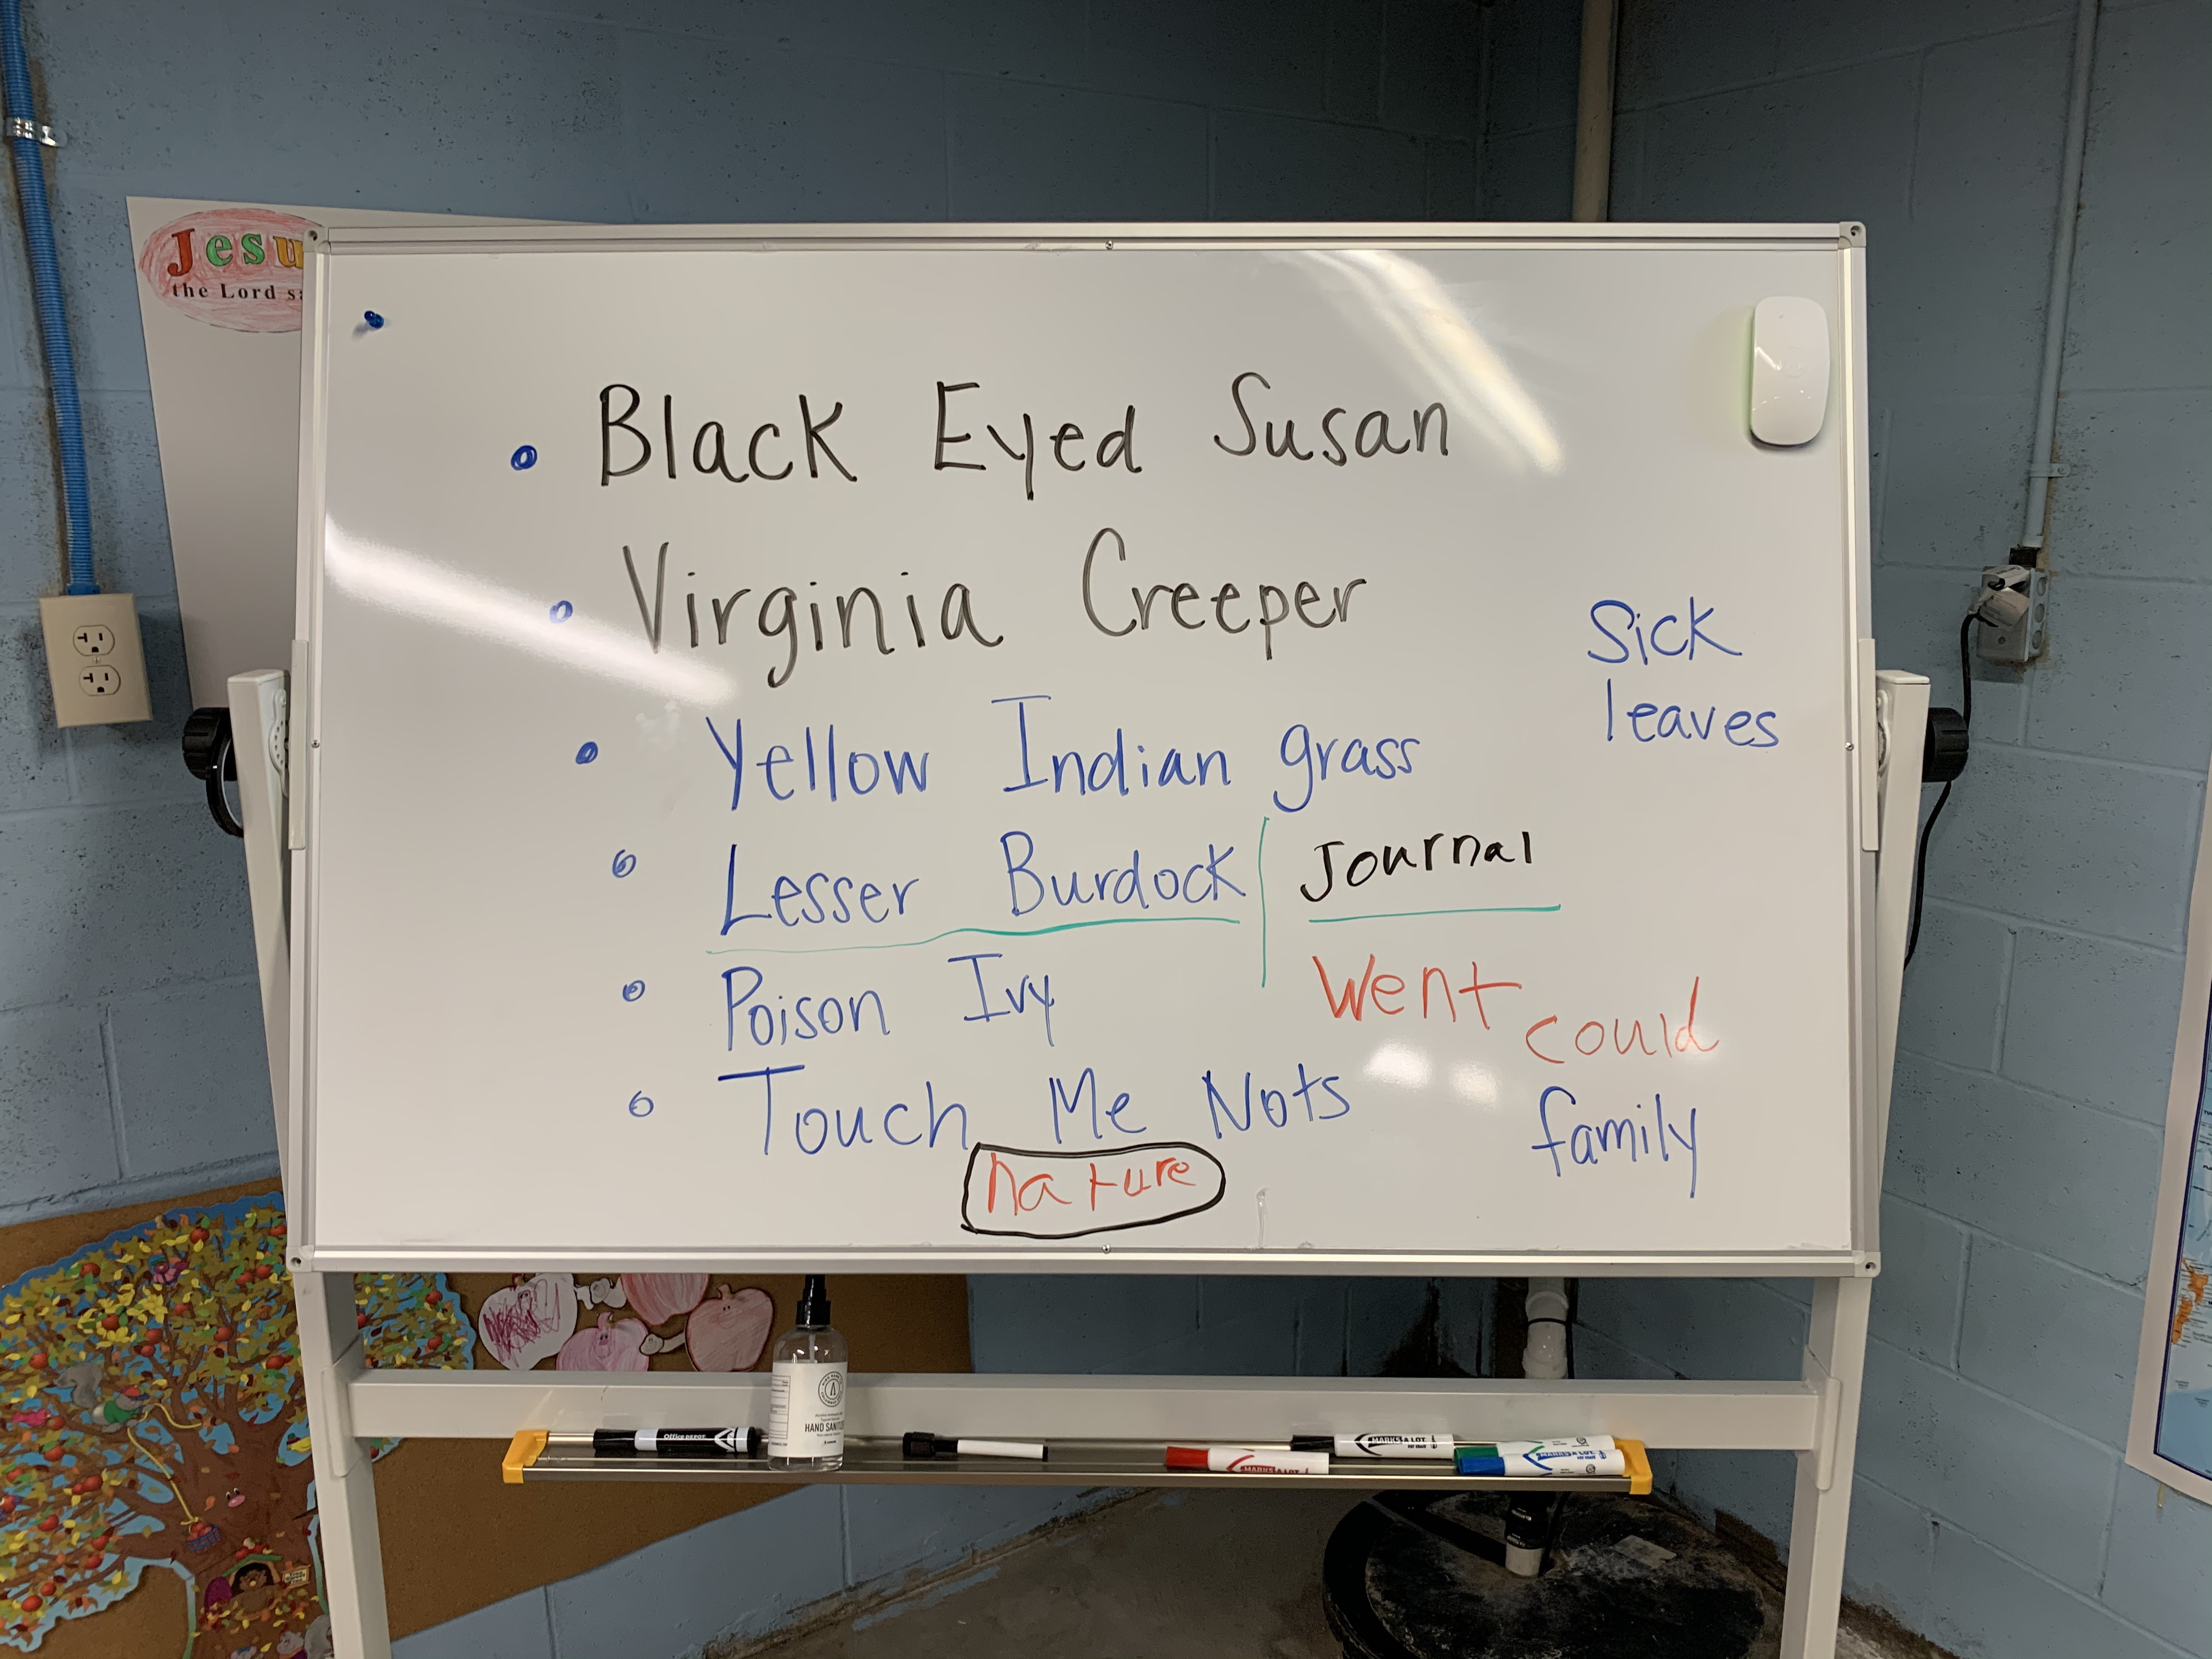 Jesu
the Lord s
• Black Eyed Susan
• Virginia Creeper
Sick
leaves
• Yellow Indian grass
• Lesser Burdock
Journal
• Poison Ivy
Went could
• Touch Me Nots
family
nature
Office DEPOT
HAND SANITIZ
MARKS A LOT
MARKS A LOT
MARKS A LOT